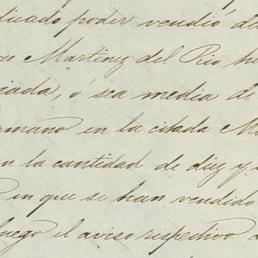 ticado poder vendió de
Martinez del Rio h
ciada, ó sea media de
rmano en la citada M
n la cantidad de diez y
en que se han vendido
uego el aviso respectivo